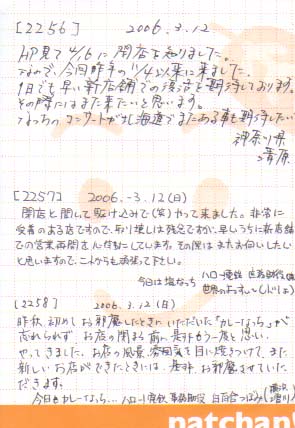 [2256] 2006.3.12
HP見て4/16に閉店を知りました。
なので、今回昨年の11/4以来に来ました。
1日でも早い新店舗での復活を期待しております。
その時にはまた来たいと思います。
なっちのコンサートが北海道でまたある事も期待したい
神奈川県
清原
[2257] 2006.-3.12(日)
閉店と聞いて駆け込みで(笑)やって来ました。非常に
愛着のある店ですので、取り壊しは残念ですが、早いうちに新店舗
での営業再開を心待ちにしています。その際はまたお伺いしたい
と思いますので、これからも頑張って下さい。
今日は塩なっち ハロー
[2258] 2006.3.12(日)
昨秋、初めてお邪魔したときにいただいた"カレーなっち"が
忘れられず お店の閉まる前に是非もう一度と思い
やってきました。お店の風景、雰囲気を目に焼きつけて、また
新しいお店ができたときには、是非、お邪魔させていた
だきます。
今日もカレーなっち… ハロー
patchank